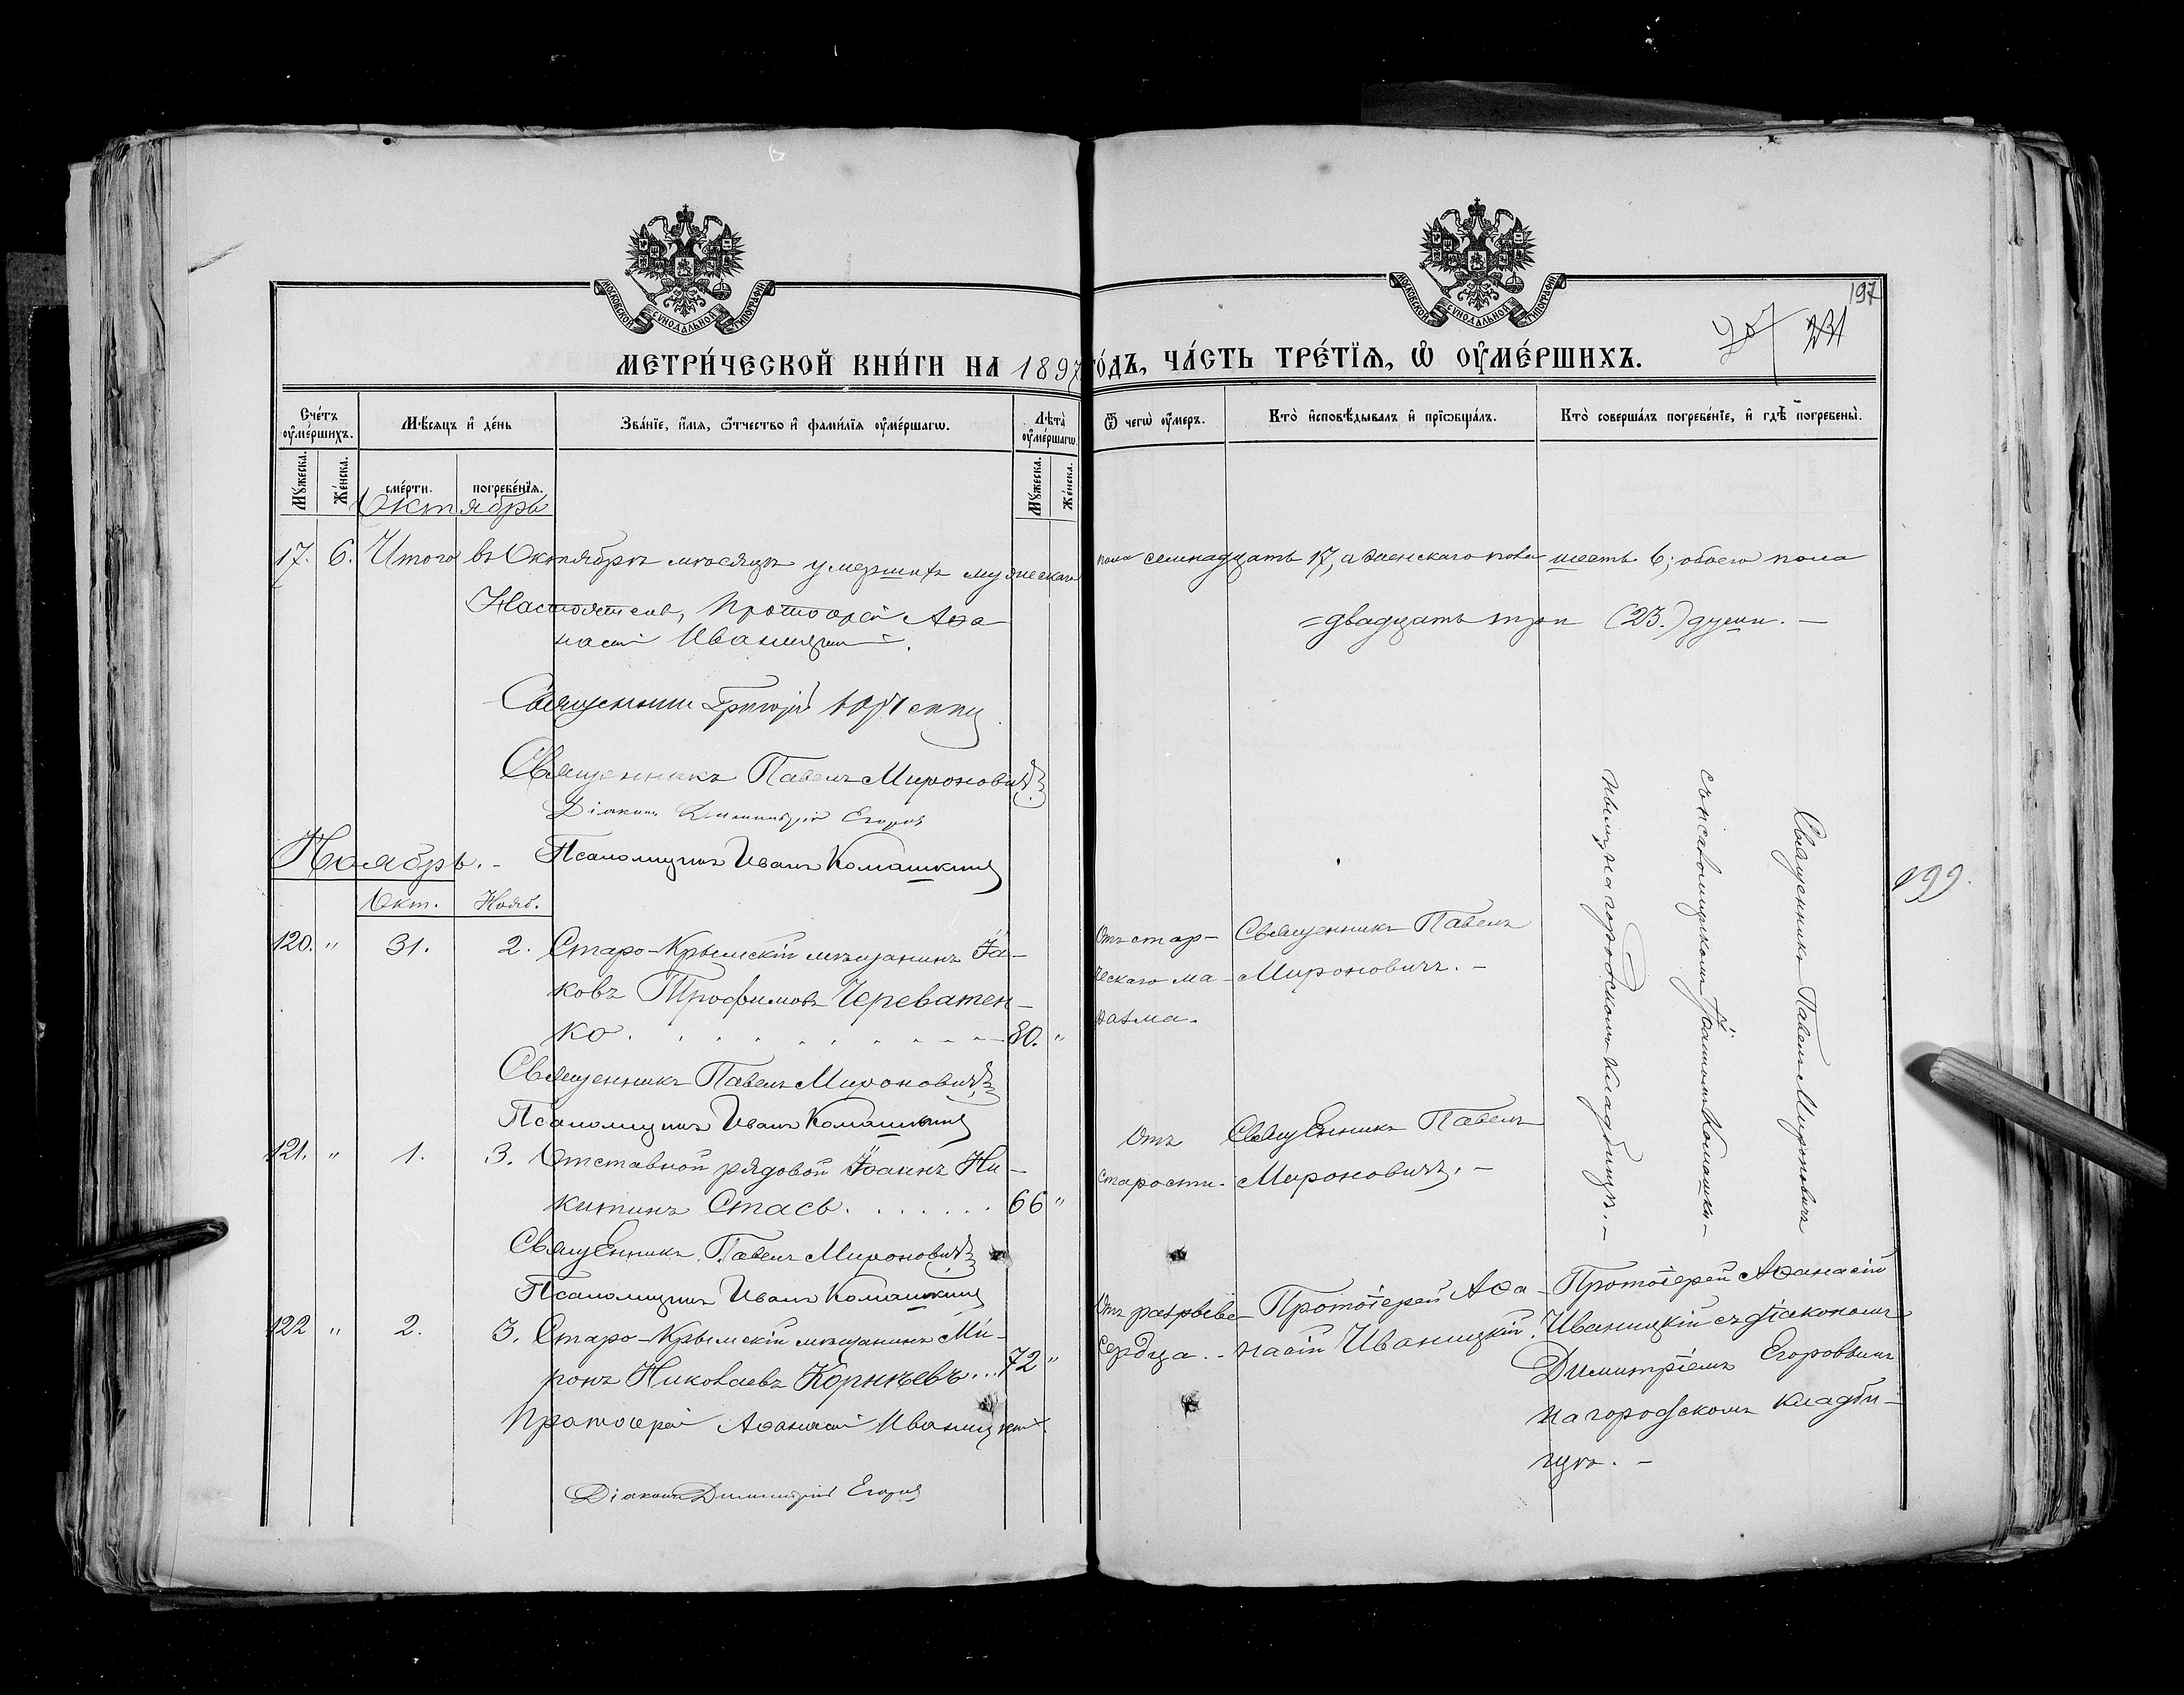 МОСКОВСКОЙ СѴНОДАЛЬНОЙ ТИПОГРАФІИ
МОСКОВСКОЙ СѴНОДАЛЬНОЙ ТИПОГРАФІИ
197
231
МЕТРИ́ЧЕСКОЙ КНИ́ГИ НА 1897 ГО́ДЪ, ЧА́СТЬ ТРЕ́ТЇѦ, Ѡ ОУМЕ́РШИХЪ.
Сче́тъ оумéршихъ.
Мѣ́сѧцъ и҆ де́нь
Зва́нїе, и҆́мѧ, ѻ҆́тчество и҆ фами́лїѧ оумéршагѡ.
Лѣ́та оумéршагѡ
Ѿ чегѡ̀ оу́меръ.
Кто̀ и҆сповѣ́дывалъ и҆ прїѡбща́лъ.
Кто̀ соверша́лъ погребе́нїе, и҆ гдѣ̀ погребены̀.
Мꙋ́жеска.
Же́нска.
сме́рти.
погребе́нїѧ.
Мꙋ́жеска.
Же́нска.
Октябрь
17. 6. Итого въ Октябрѣ мѣсяцѣ умершихъ мужескаго пола семнадцать 17, а женскаго пола шесть 6; обоего пола
=двадцать три (23.) души. —
Настоятель, Протоіерей Аѳа-
насій Иваницкій.
Священникъ Григорій
Священникъ Павелъ Мироновичъ
Діаконъ Димитрій Егоровъ
Псаломщикъ Иванъ Комашкинъ
Ноябрь. -
Окт. Нояб.
199.
120. " 31. 2. Старо-Крымскій мѣщанинъ Іа-
ковъ Трофимовъ Череватен-
ко. 80. "
Отъ стар-
ческаго ма-
разма.
Священникъ Павелъ
Мироновичъ. -
Священникъ Павелъ Мироновичъ
съ псаломщикомъ Іоанномъ Комашки-
нымъ, на городскомъ кладбищѣ. -
Священникъ Павелъ Мироновичъ
Псаломщикъ Иванъ Комашкинъ
121. " 1. 3. Отставной рядовой Іоаннъ Ни-
китинъ Стась. 66 "
Отъ
старости.
Священникъ Павелъ
Мироновичъ. -
Священникъ Павелъ Мироновичъ
Псаломщикъ Иванъ Комашкинъ
122 " 2. 3. Старо-Крымскій мѣщанинъ Ми-
ронъ Николаевъ Корнѣевъ... 72 "
Отъ разрыва
сердца. -
Протоіерей Аѳа-
насій Иваницкій.
Протоіерей Аѳанасій
Иваницкій съ діакономъ
Димитріемъ Егоровымъ
на городскомъ кладби-
щѣ. -
Протоіерей Аѳанасій Иваницкій
Діаконъ Димитрій Егоровъ